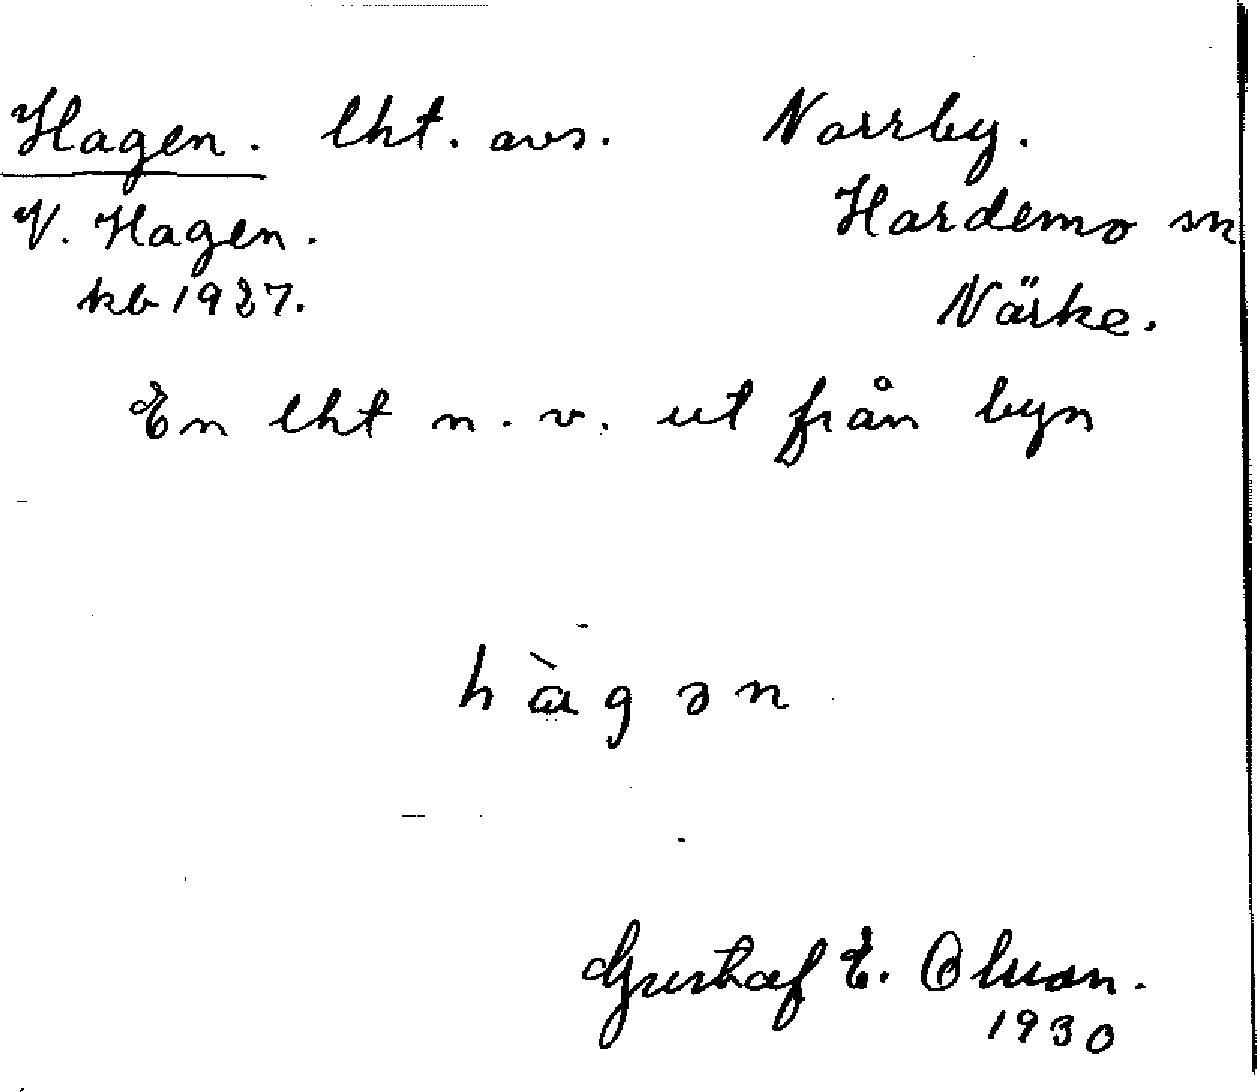 Hagen. lht. avs. Norrby.
V. Hagen. Hardemo sn
kb 1927. Närke.
En lht n.v. ut från byn
hàgən
Gustaf E. Olsson.
1930